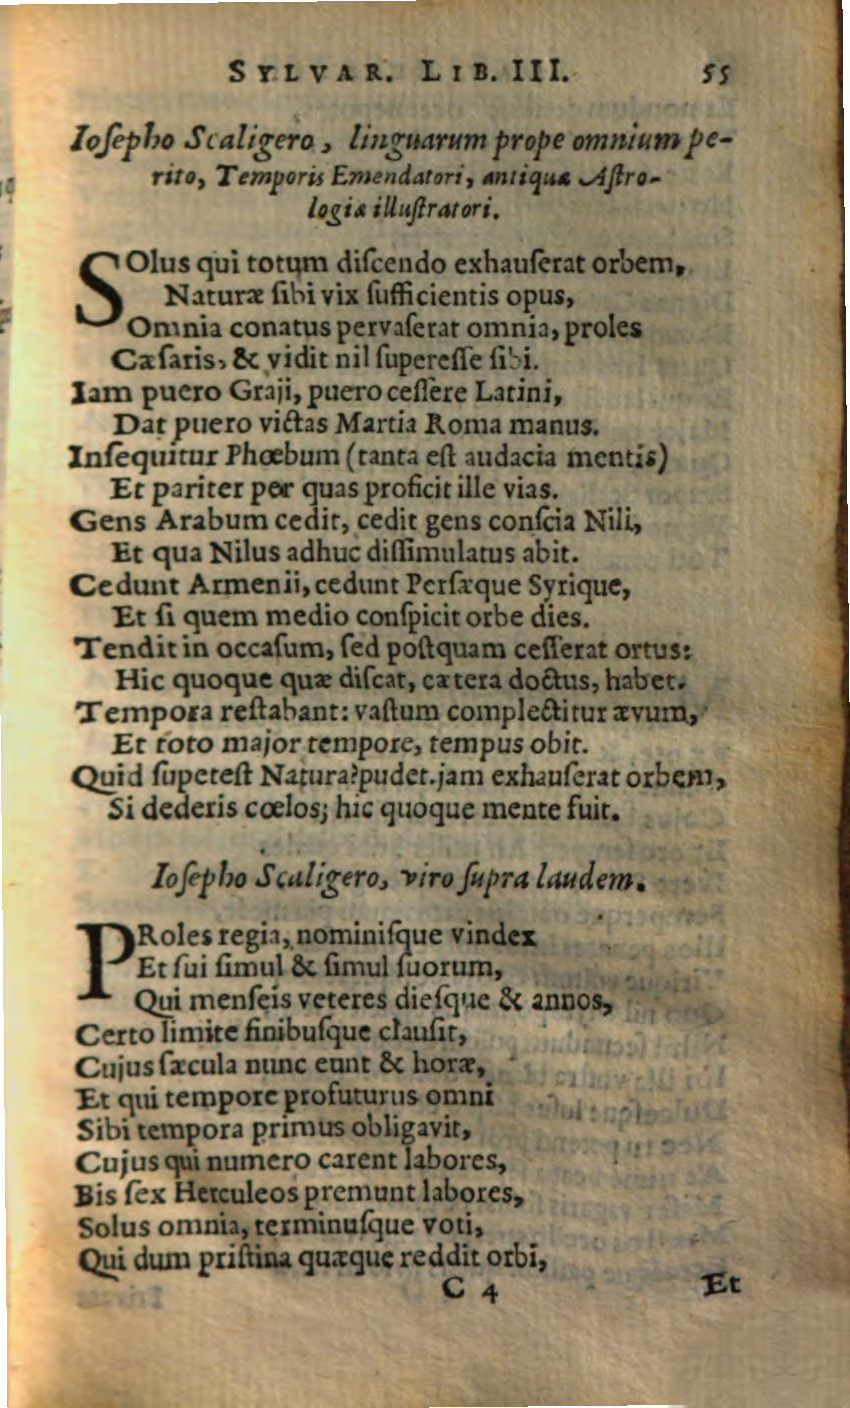 SYLVAR. LIB. III. 55
Ioſepho Scaligero, linguarum prope omnium pe-
rito, Temporis Emendatori, antiquæ Aſtro-
logiæ illuſtratori.
SOlus qui totum diſcendo exhauſerat orbem,
Naturæ ſibi vix ſufficientis opus,
Omnia conatus pervaſerat omnia, proles
Cæſaris, & vidit nil ſupereſſe ſibi.
Iam puero Graji, puero ceſſere Latini,
Dat puero victas Martia Roma manus.
Inſequitur Phœbum (tanta eſt audacia mentis)
Et pariter per quas proficit ille vias.
Gens Arabum cedit, cedit gens conſcia Nili,
Et qua Nilus adhuc diſſimulatus abit.
Cedunt Armenii, cedunt Perſæque Syrique,
Et ſi quem medio conſpicit orbe dies.
Tendit in occaſum, ſed poſtquam ceſſerat ortus:
Hic quoque quæ diſcat, cætera doctus, habet.
Tempora reſtabant: vaſtum complectitur ævum,
Et toto major tempore, tempus obit.
Quid ſupereſt Natura? pudet. jam exhauſerat orbem,
Si dederis cœlos; hic quoque mente fuit.
Ioſepho Scaligero, viro ſupra laudem.
PRoles regia, nominiſque vindex
Et ſui ſimul & ſimul ſuorum,
Qui menſeis veteres dieſque & annos,
Certo limite finibuſque clauſit,
Cujus ſæcula nunc eunt & horæ,
Et qui tempore profuturus omni
Sibi tempora primus obligavit,
Cujus qui numero carent labores,
Bis ſex Herculeos premunt labores,
Solus omnia, terminuſque voti,
Qui dum priſtina quæque reddit orbi,
C 4 Et